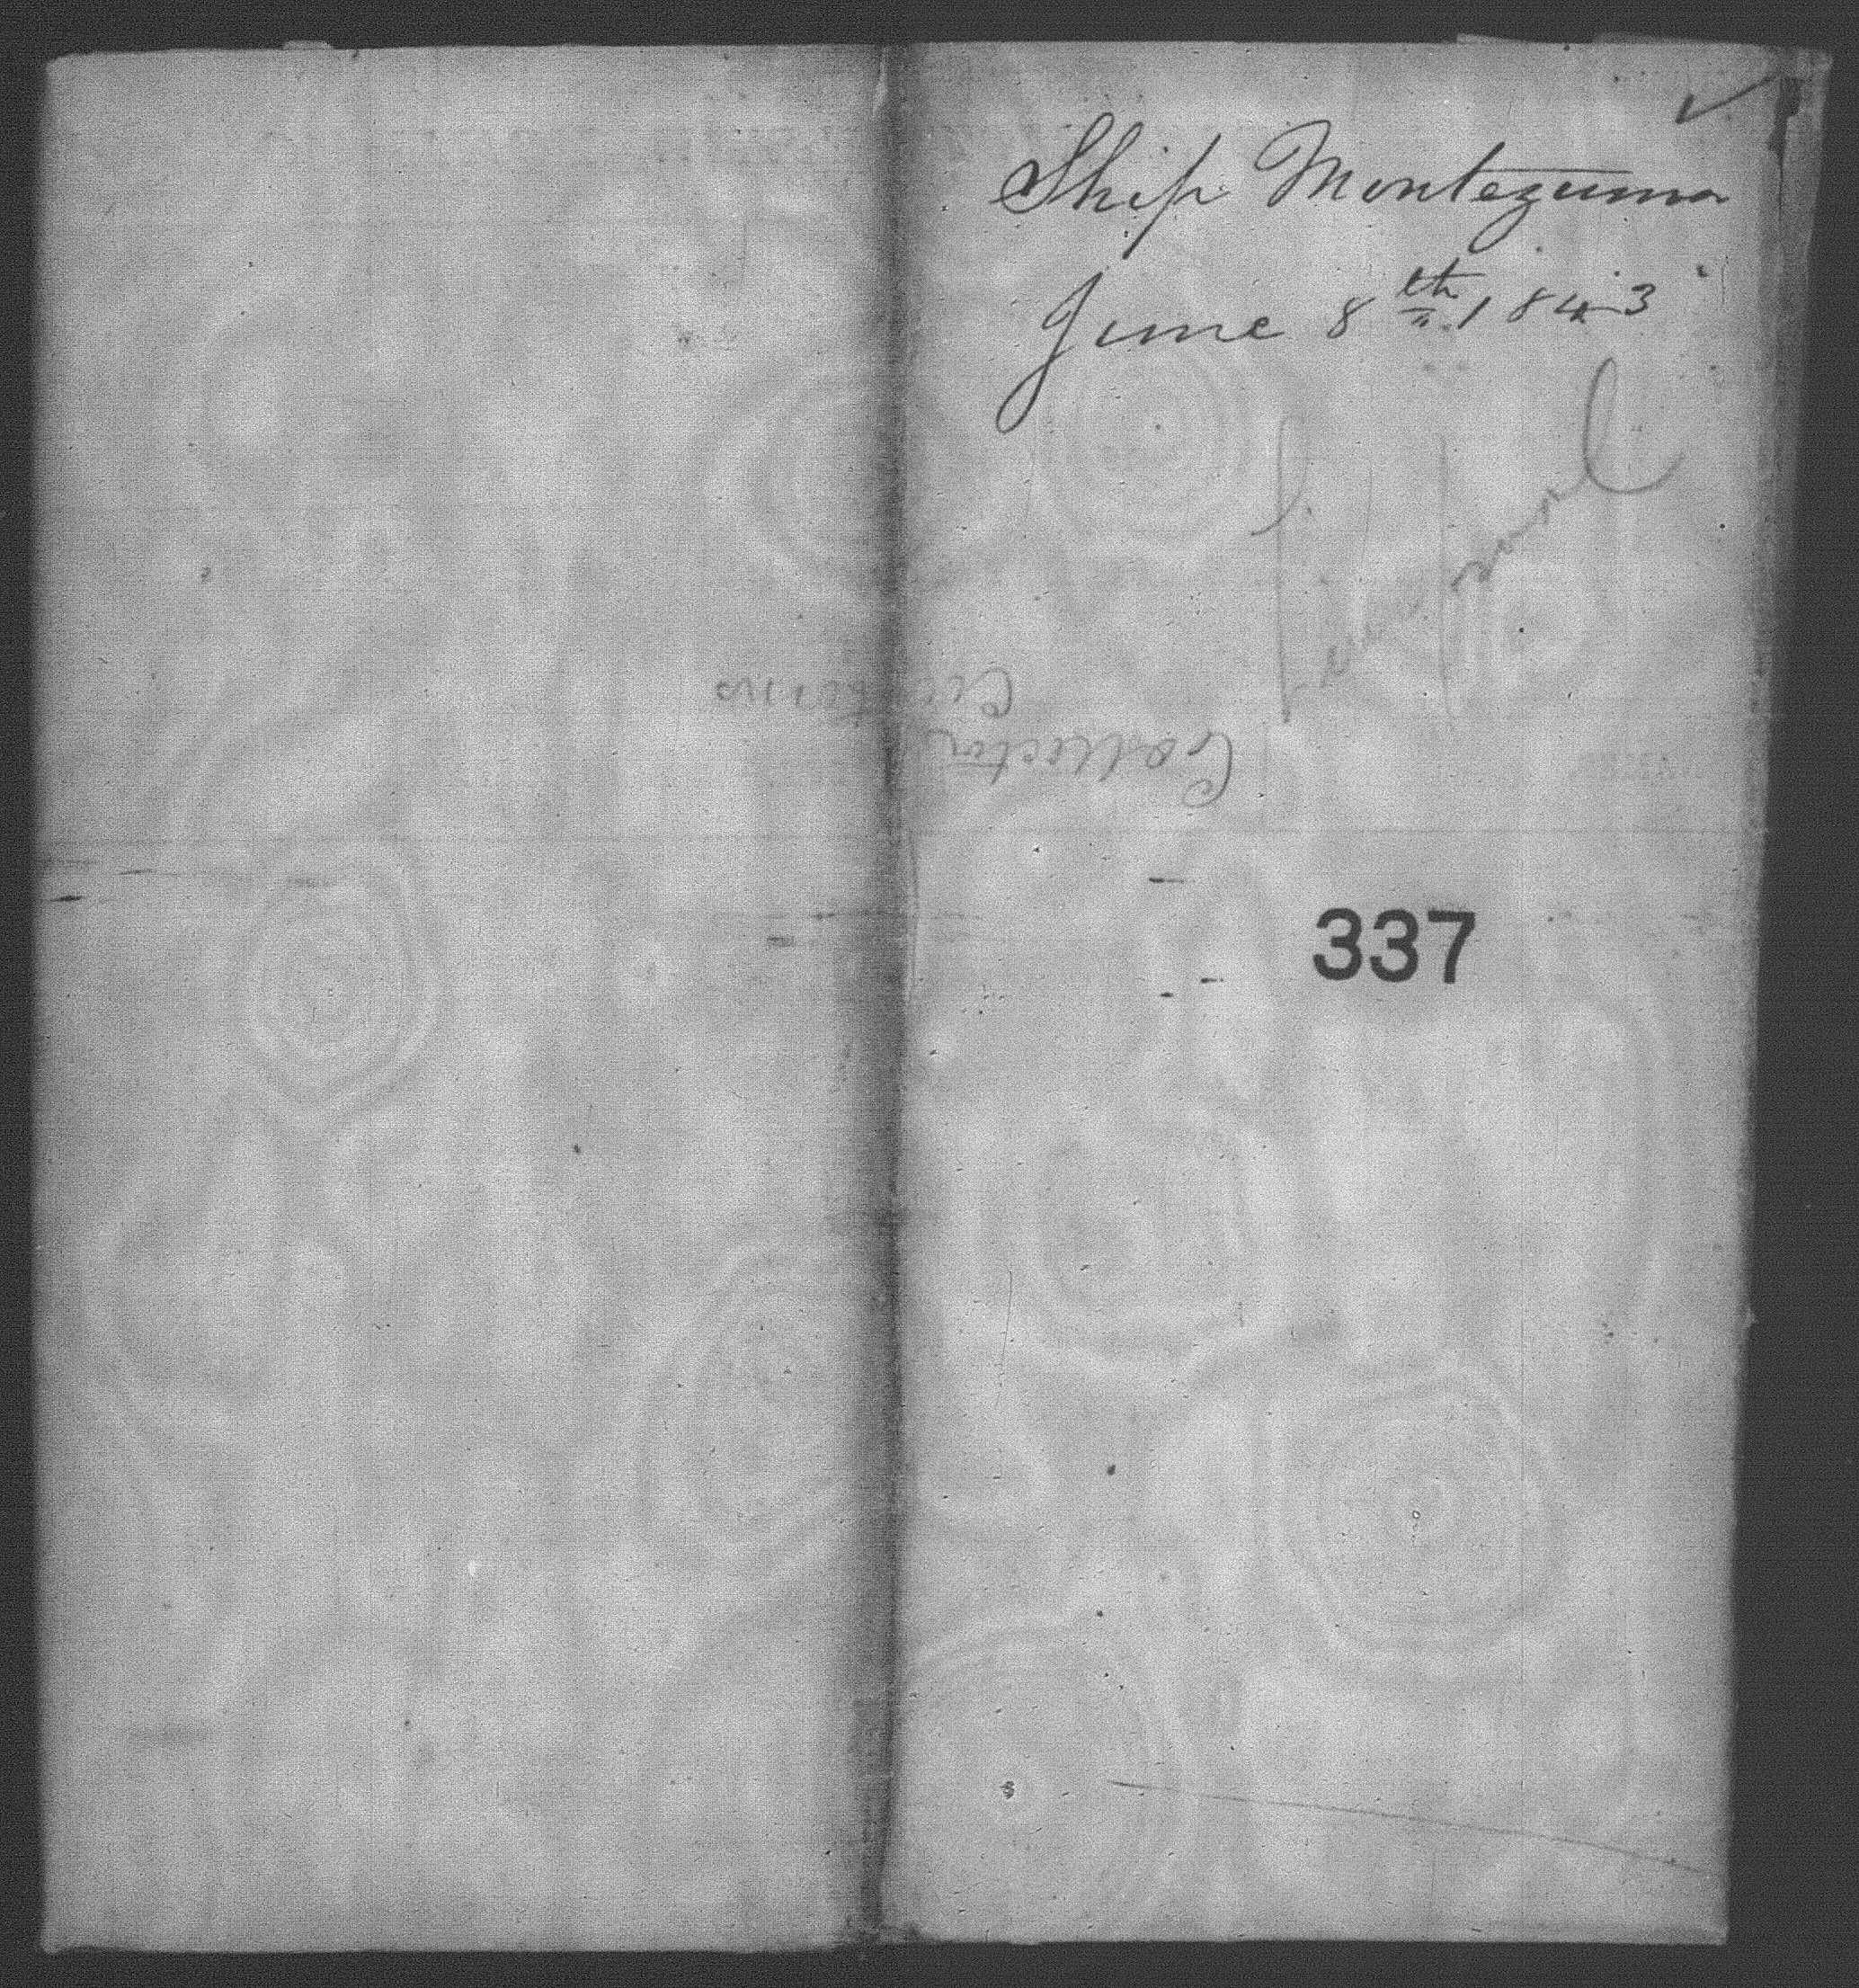 Ship Montezuma
June 8th 1843
Liverpool
Collector
Customs
337